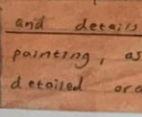 and details
painting, as
detailed